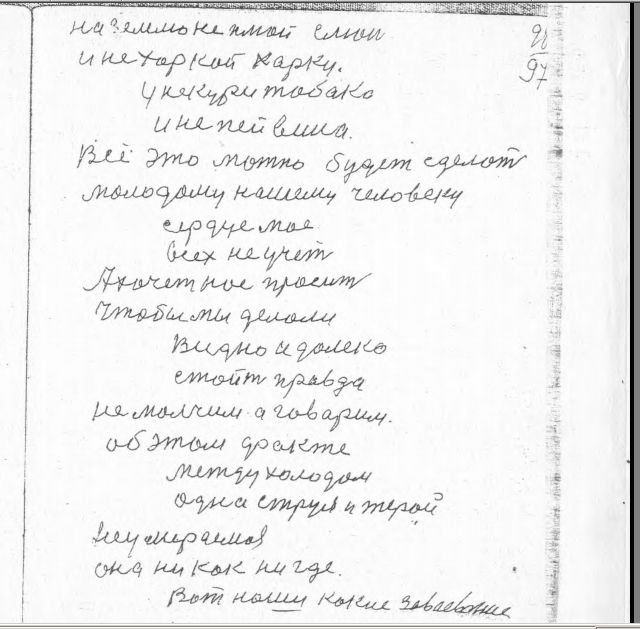 на землю не плюй слюн
и не харкой харку.
и не кури табако
и не пей вина.
Всё это можно будет сделот
молодому нашему человеку
сердце мое
всех не учет
А хочет нос просит
Чтобы мы делоли
Видно и далеко
стойт правда
не молчим а говарим.
об этом факте
между холодом
одна струя и жарой
неумераемоя
она ни как ни где.
Вот наши какие
98
97